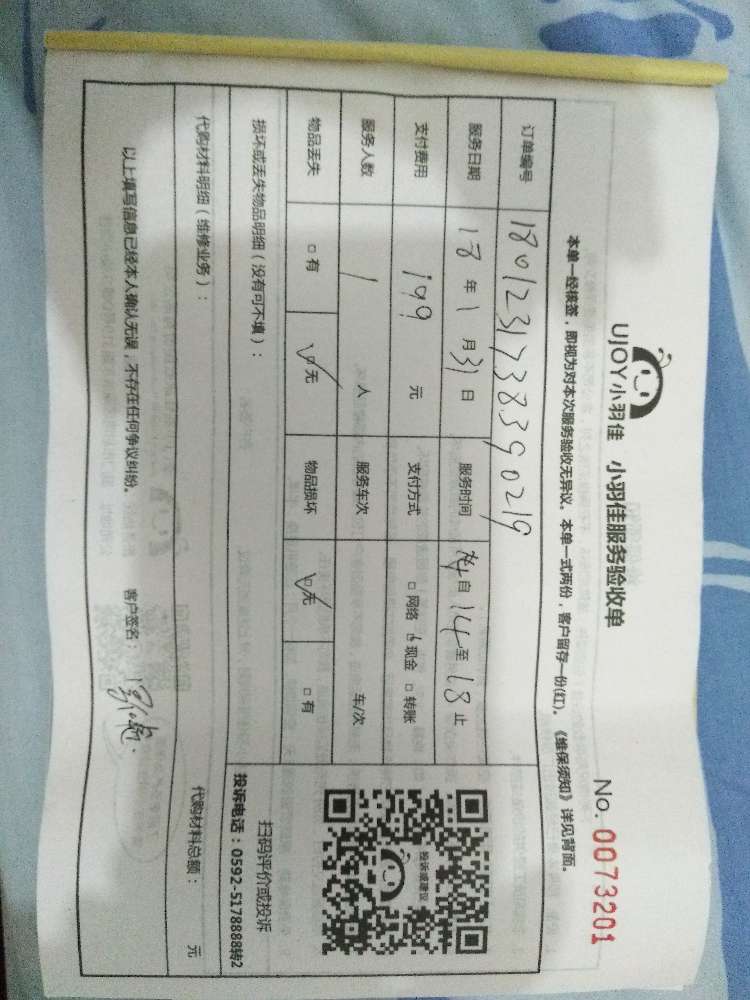 UJOY小羽佳 小羽佳服务验收单
No. 0073201
本单一经核签，即视为对本次服务验收无异议。本单一式两份，客户留存一份(红)。《维保须知》详见背面。
订单编号 1801231738390219
服务日期 18年1月31日 服务时间 自14至18止
支付费用 199元 支付方式 □网络 □现金 □转账
服务人数 1人 服务车次 车/次
物品丢失 □有 □无 物品损坏 □无 □有
损坏或丢失物品明细（没有可不填）：
投诉或建议
扫码评价或投诉
投诉电话：0592-5178888转2
代购材料明细（维修业务）： 代购材料总额： 元
以上填写信息已经本人确认无误，不存在任何争议纠纷。 客户签名：